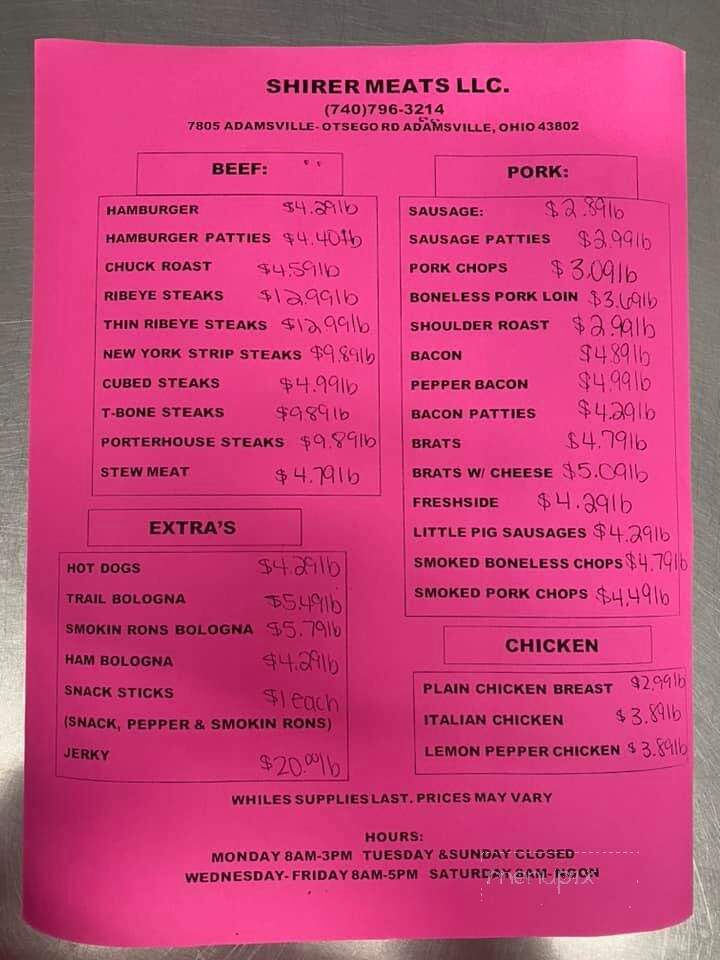 SHIRER MEATS LLC.
(740)796-3214
7805 ADAMSVILLE-OTSEGO RD ADAMSVILLE, OHIO 43802
BEEF:
HAMBURGER $4.29lb
HAMBURGER PATTIES $4.40lb
CHUCK ROAST $4.59lb
RIBEYE STEAKS $12.99lb
THIN RIBEYE STEAKS $12.99lb
NEW YORK STRIP STEAKS $9.89lb
CUBED STEAKS $4.99lb
T-BONE STEAKS $9.89lb
PORTERHOUSE STEAKS $9.89lb
STEW MEAT $4.79lb
EXTRA'S
HOT DOGS $4.29lb
TRAIL BOLOGNA $5.49lb
SMOKIN RONS BOLOGNA $5.79lb
HAM BOLOGNA $4.29lb
SNACK STICKS $1 each
(SNACK, PEPPER & SMOKIN RONS)
JERKY $20.00lb
PORK:
SAUSAGE: $2.89lb
SAUSAGE PATTIES $2.99lb
PORK CHOPS $3.09lb
BONELESS PORK LOIN $3.69lb
SHOULDER ROAST $2.99lb
BACON $4.89lb
PEPPER BACON $4.99lb
BACON PATTIES $4.29lb
BRATS $4.79lb
BRATS W/ CHEESE $5.09lb
FRESHSIDE $4.29lb
LITTLE PIG SAUSAGES $4.29lb
SMOKED BONELESS CHOPS $4.79lb
SMOKED PORK CHOPS $4.49lb
CHICKEN
PLAIN CHICKEN BREAST $2.99lb
ITALIAN CHICKEN $3.89lb
LEMON PEPPER CHICKEN $3.89lb
WHILES SUPPLIES LAST. PRICES MAY VARY
HOURS:
MONDAY 8AM-3PM TUESDAY &SUNDAY CLOSED
WEDNESDAY- FRIDAY 8AM-5PM SATURDAY 8AM-NOON
menupix